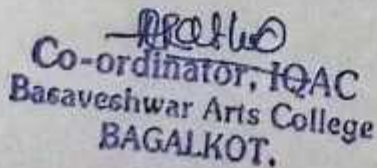 Co-ordinator, IQAC
Basaveshwar Arts College
BAGALKOT.